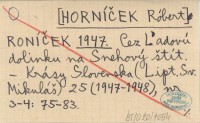 [HORNÍČEK Róbert]
RONÍČEK 1947. Cez Ľadovú
dolinku na Snehový štít.
- Krásy Slovenska (Lipt. Sv.
Mikuláš) 25 (1947-1948), no
3-4: 75-83.